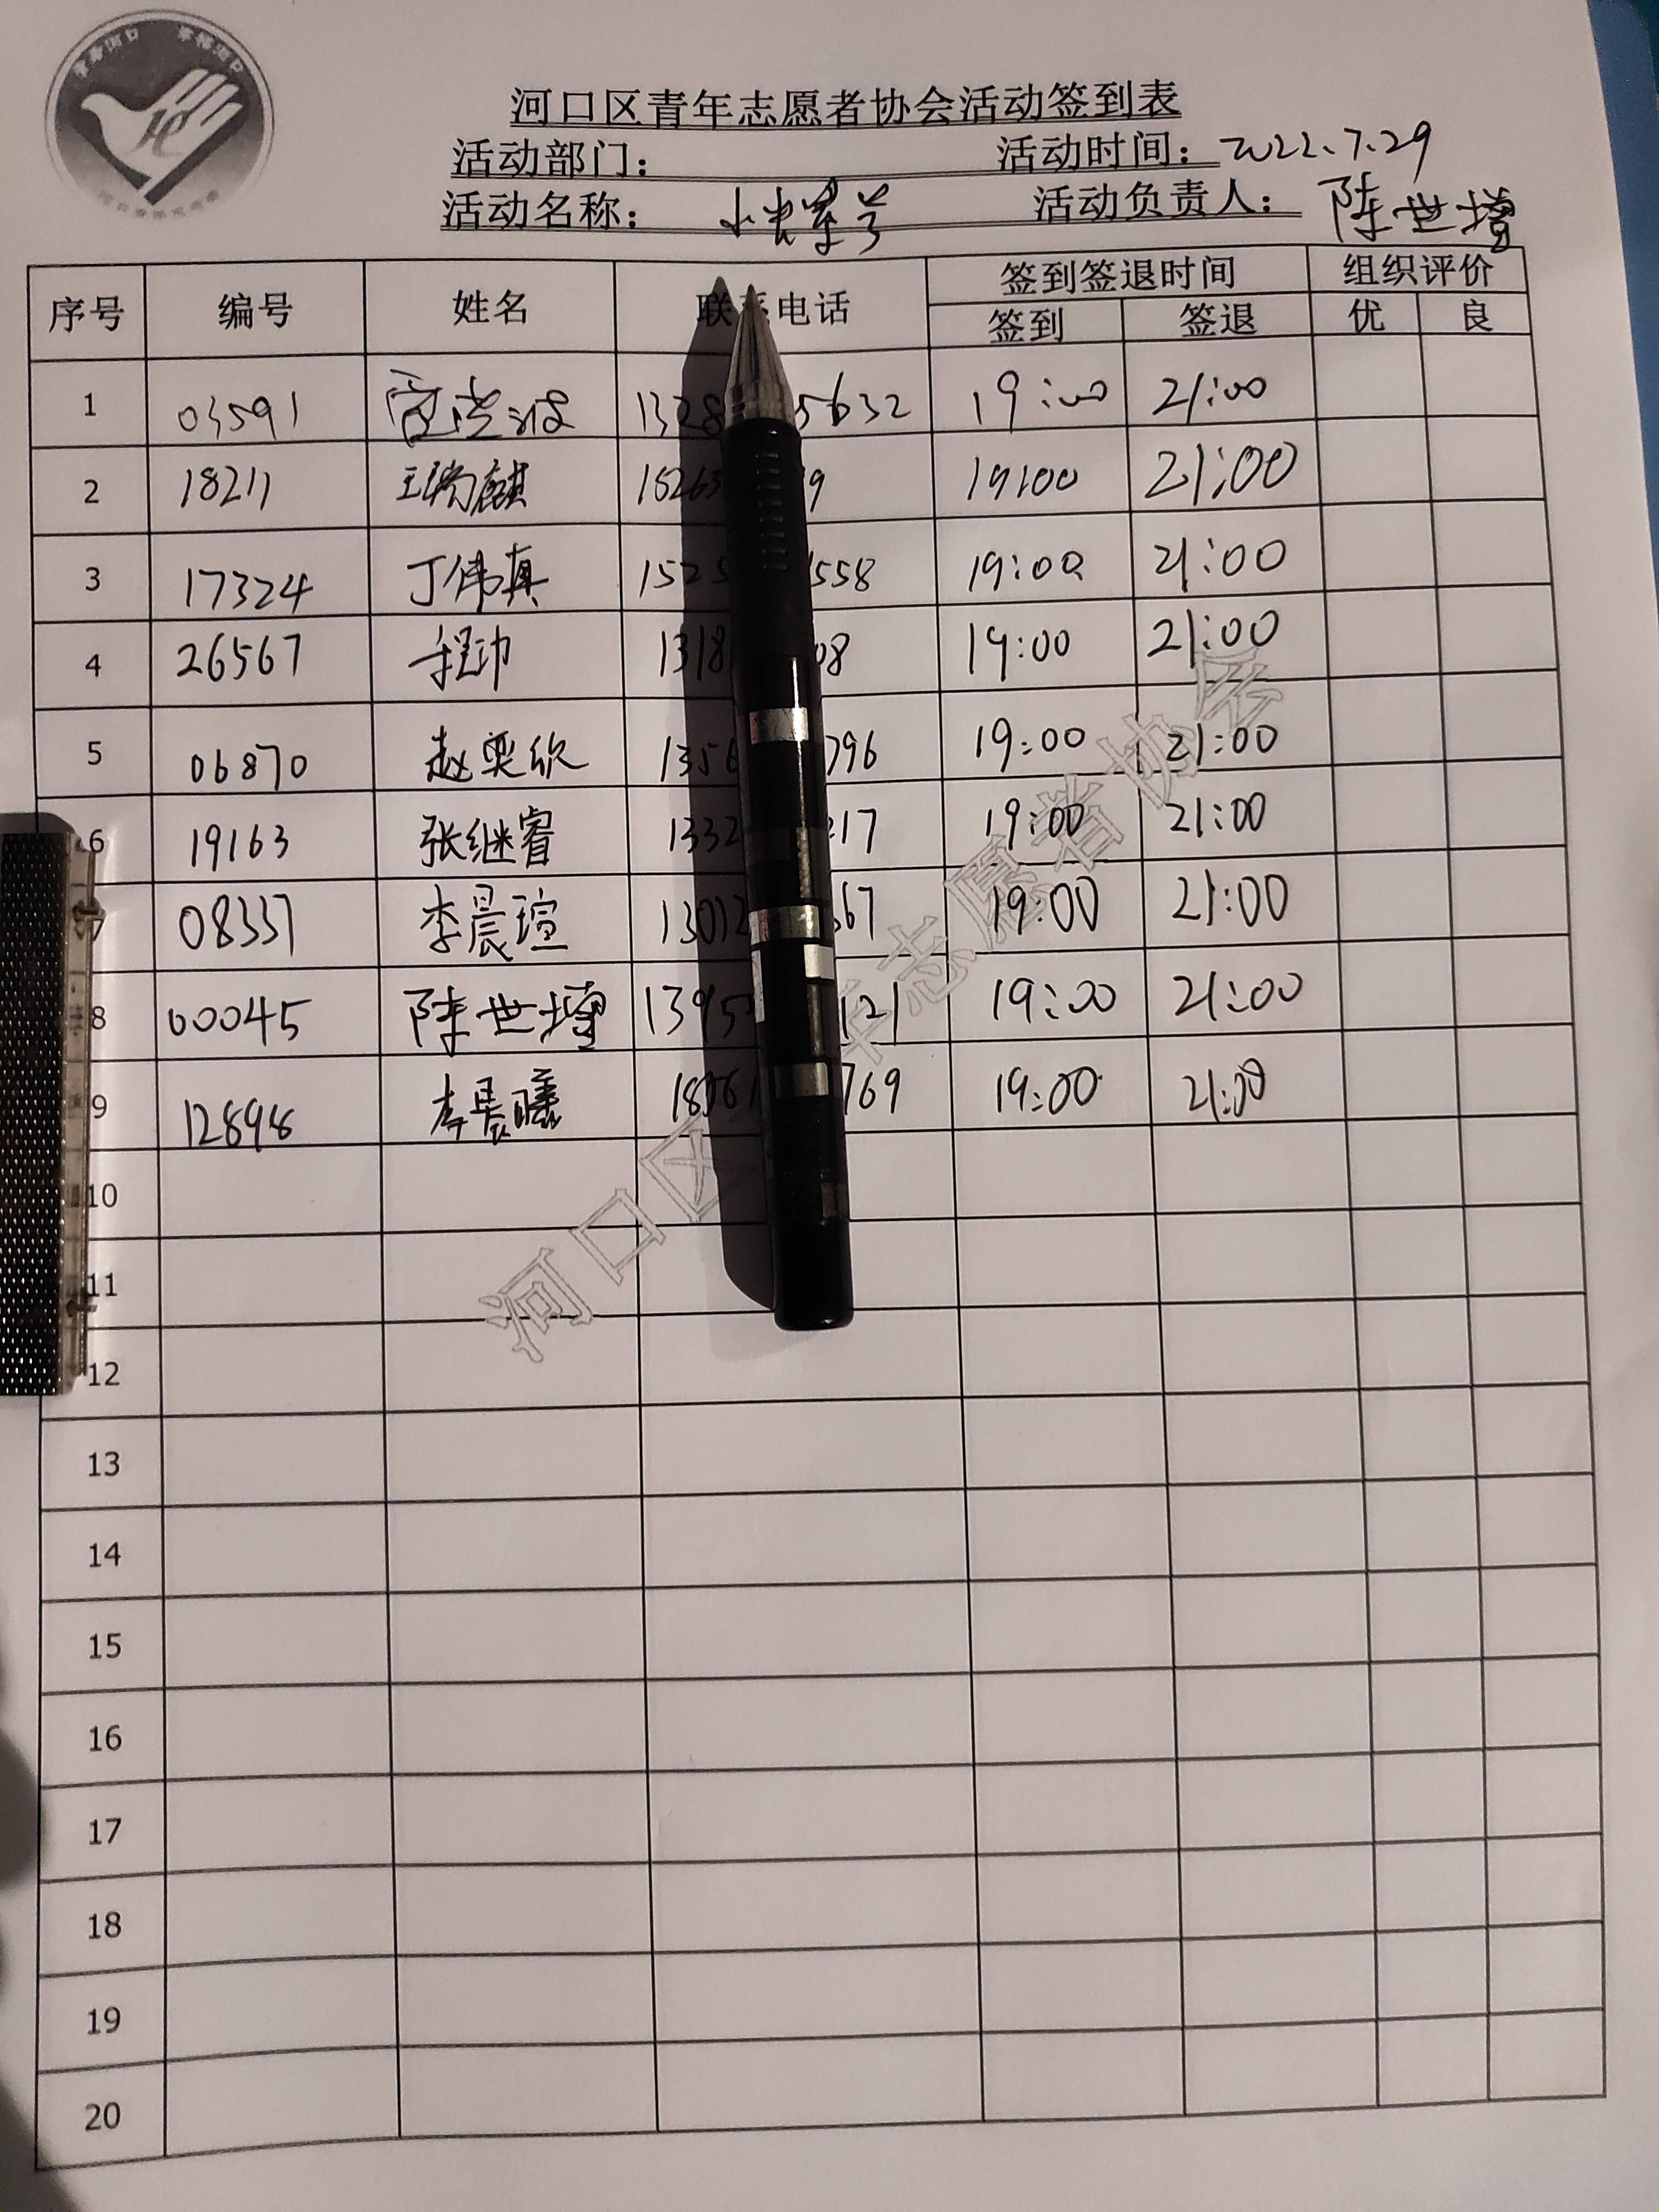 河口区青年志愿者协会活动签到表
活动部门： 活动时间：2022.7.29
活动名称： 活动负责人：陈世增
序号 编号 姓名 联系电话 签到签退时间 组织评价
签到 签退 优 良
1 03591 1328 5632 19:00 21:00
2 18211 王瑞麒 18263 9 19:00 21:00
3 17324 丁伟真 1525 558 19:00 21:00
4 26567 程帅 1318 08 19:00 21:00
5 06870 赵奕欣 1356 796 19:00 21:00
6 19163 张继睿 1332 17 19:00 21:00
7 08337 李晨瑄 13012 567 19:00 21:00
8 00045 陈世增 1395 121 19:00 21:00
9 12898 李晨曦 1876 769 19:00 21:00
10
11
12
13
14
15
16
17
18
19
20
河口区 年志愿者协会